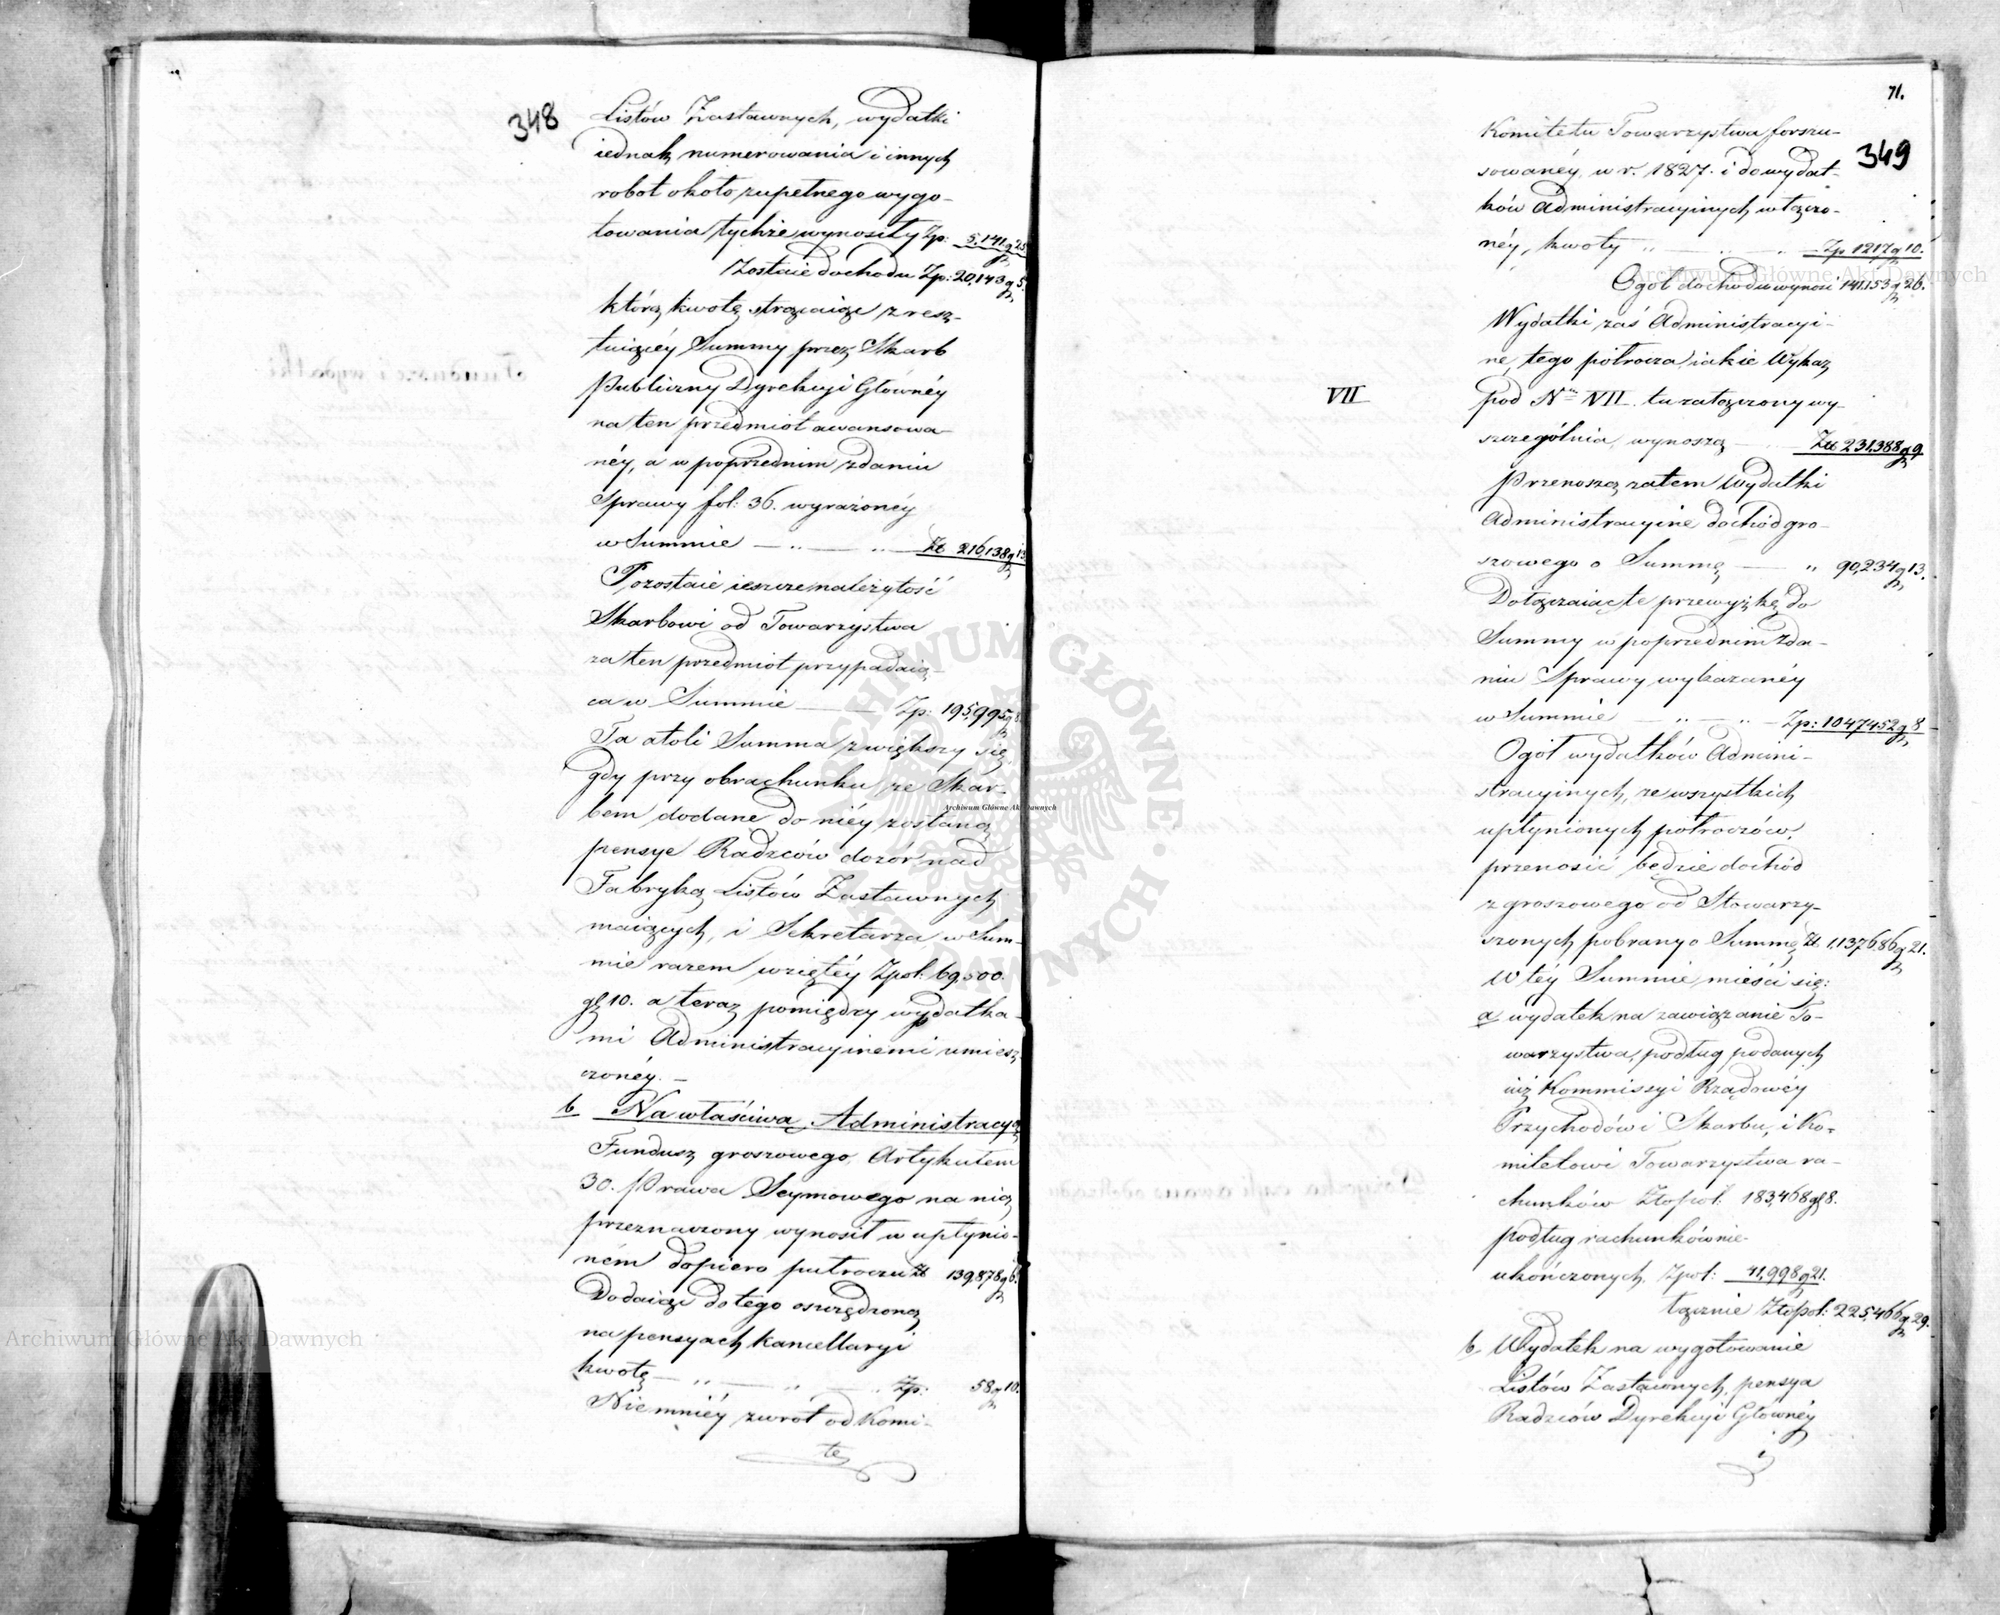 348
Listów Zastawnych, wydatki
iednak numerowania i innych
robot około zupełnego wygo-
towania tychże wynosiły Zp: 5,141 g 25
Zostaie dochodu Zp: 20,143 g 5.
którą kwotę strącaiąc z resz-
tuiącéy Summy przez Skarb
Publiczny Dyrekcyi Głównéy
na ten przedmiot awansowa-
néy, a w poprzednim zdaniu
Sprawy fol: 36. wyrażonéy
w Summie — „ — „ — Zł 216,138 g 13
Pozostaie ieszcze należytość
Skarbowi od Towarzystwa
za ten przedmiot przypadaią-
ca w Summie — Zp: 195,995 g 8.
Ta atoli Summa zwiększy się
gdy przy obrachunku ze Skar-
bem dodane do niéy zostaną
pensye Radzców dozór nad
Fabryką Listów Zastawnych
maiących, i Sekretarza w Sum-
mie razem wziętéy Zpol: 69,500.
gr 10. a teraz pomiędzy wydatka-
mi Administracyinemi umiesz-
czonéy. —
b Na właściwą Administracyą
Fundusz groszowego Artykułem
30. Prawa Seymowego na nią
przeznaczony wynosił w upłynio-
ném dopiero półroczu Zł 139,878 g 6.
Dodaiąc do tego oszczędzoną
na pensyach kancellaryi
kwotę — „ — „ — „ Zp: 58 g 10.
Niemniéy zwrot od Komi-
te
71.
349
Komitetu Towarzystwa forszu-
sowanéy, w r. 1827. i do wydat-
ków Administracyinych włączo-
néy, kwoty „ „ Zp 1217 g 10.
Ogół dochodu wynosi 141,153 g 26.
Wydatki zaś Administracyi-
ne, tego półrocza, iakie Wykaz
VII
pod Nrem VII. tu załączony wy-
szczególnia, wynoszą — Zł 231,388 g 9
Przenoszą zatem Wydatki
Administracyine dochód gro-
szowego o Summę — „ 90,234 g 13.
Dołączaiąc te przewyżkę do
Summy w poprzednim zda-
niu Sprawy wykazanéy
w Summie — „ — „ — Zp: 1047452 g 8
Ogół wydatków Admini-
stracyinych, ze wszystkich
upłynionych półroczów,
przenosić będzie dochód
z groszowego od Stowarzy-
szonych pobrany o Summę Zł. 1,137686 g 21.
W téy Summie mieści się:
a wydatek na zawiązanie To-
warzystwa, podług podanych
iuż Kommissyi Rządowéy
Przychodów i Skarbu, i Ko-
mitetowi Towarzystwa ra-
chunków Złopol: 183,468 g 8.
podług rachunków nie-
ukończonych Zpol: 41,998 g 21.
łącznie Złopol: 225,466 g 29.
b, Wydatek na wygotowanie
Listów Zastawnych, pensya
Radzców Dyrekcyi Głównéy
i
Archiwum Główne Akt Dawnych
Archiwum Główne Akt Dawnych
Archiwum Główne Akt Dawnych
ARCHIWUM GŁÓWNE AKT DAWNYCH